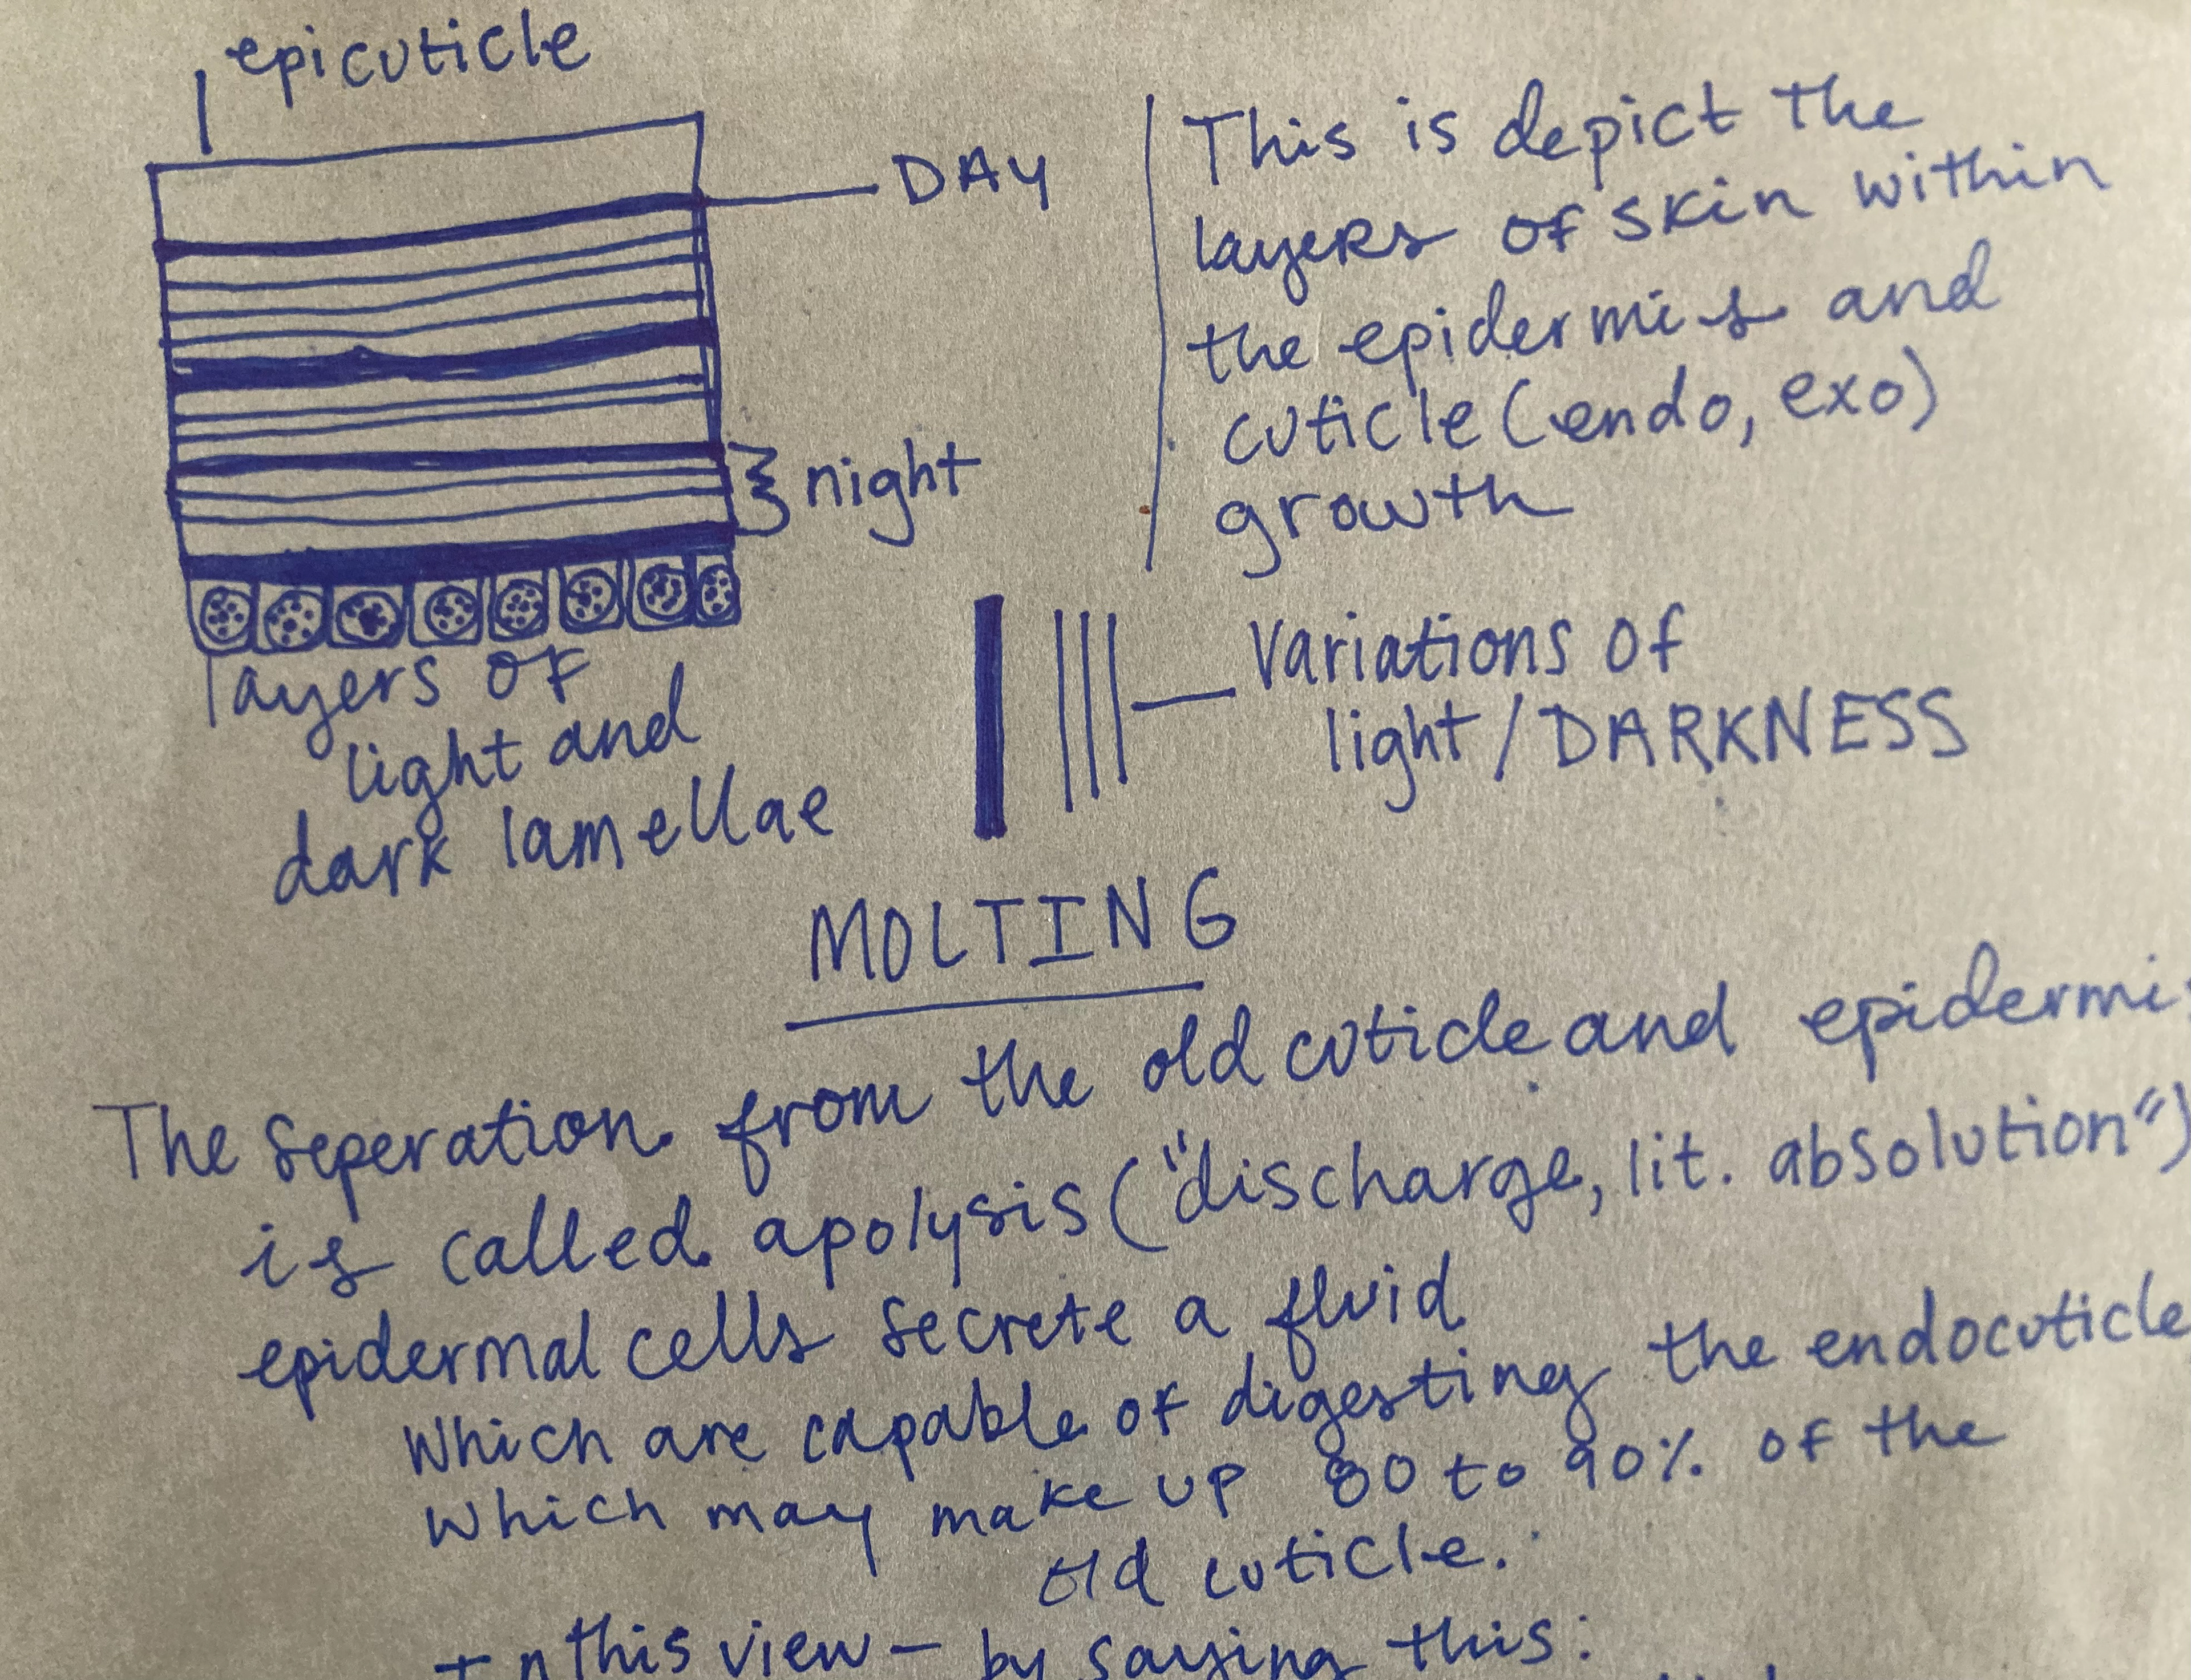 epicuticle
DAY
night
layers of
light and
dark lamellae
This is depict the
layers of skin within
the epidermis and
cuticle (endo, exo)
growth
Variations of
light/DARKNESS
MOLTING
The seperation from the old cuticle and epidermis
is called apolysis ("discharge, lit. absolution")
epidermal cells secrete a fluid
which are capable of digesting the endocuticle
which may make up 80 to 90% of the
old cuticle.
In this view - by saying this: